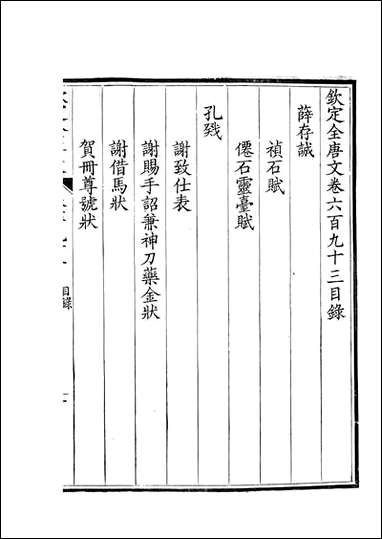 欽定全唐文卷六百九十三目錄
薛存誠
禎石賦
僊石靈臺賦
孔戣
謝致仕表
謝賜手詔兼神刀藥金狀
謝借馬狀
賀冊尊號狀
目錄